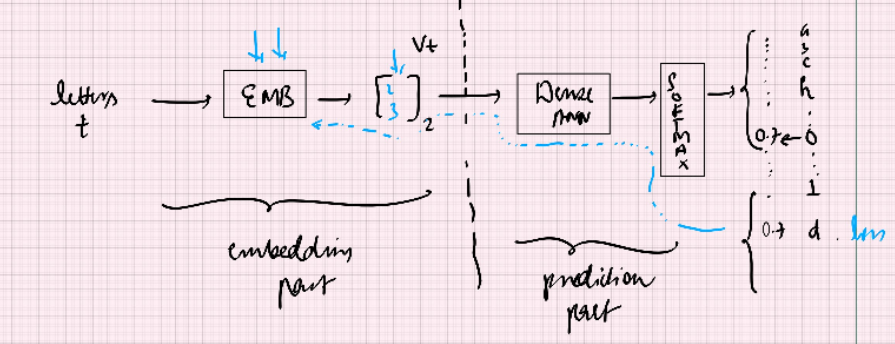 letters
t
EMB
Vt
1
2
3
2
Dense
ANN
SOFTMAX
a
b
c
h
0.7 ← o
1
0.7 d . loss
embedding
part
prediction
part